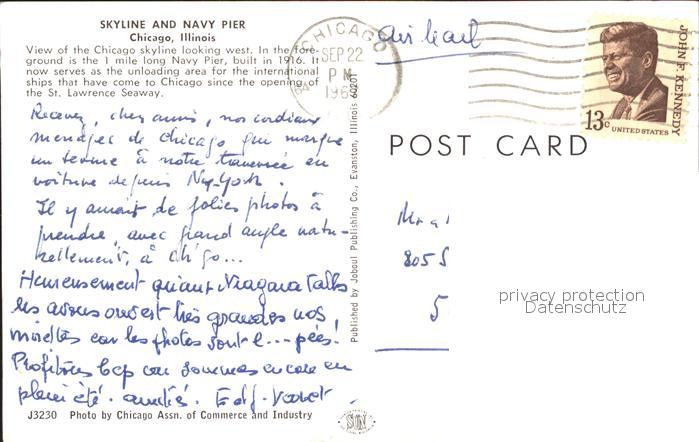 SKYLINE AND NAVY PIER
Chicago, Illinois
View of the Chicago skyline looking west. In the fore-
ground is the 1 mile long Navy Pier, built in 1916. It
now serves as the unloading area for the international
ships that have come to Chicago since the opening of
the St. Lawrence Seaway.
Recevez, chers amis, nos cordiaux
messages de Chicago qui marque
un terme à notre traversée en
voiture depuis New-York.
Il y aurait de jolies photos à
prendre, avec grand angle natu-
rellement, à Ch'go...
Heureusement qu'aux Niagara Falls
les avons ouvert très grandes nos
car les photos sont l... pées!
Profitons bcp car sommes encore en
plein été. Amitiés.
J3230 Photo by Chicago Assn. of Commerce and Industry
Published by Joboul Publishing Co., Evanston, Illinois 60201
CHICAGO
SEP 22
PM
196
air mail
JOHN F. KENNEDY
13c
UNITED STATES
POST CARD
805 S
5
privacy protection
Datenschutz